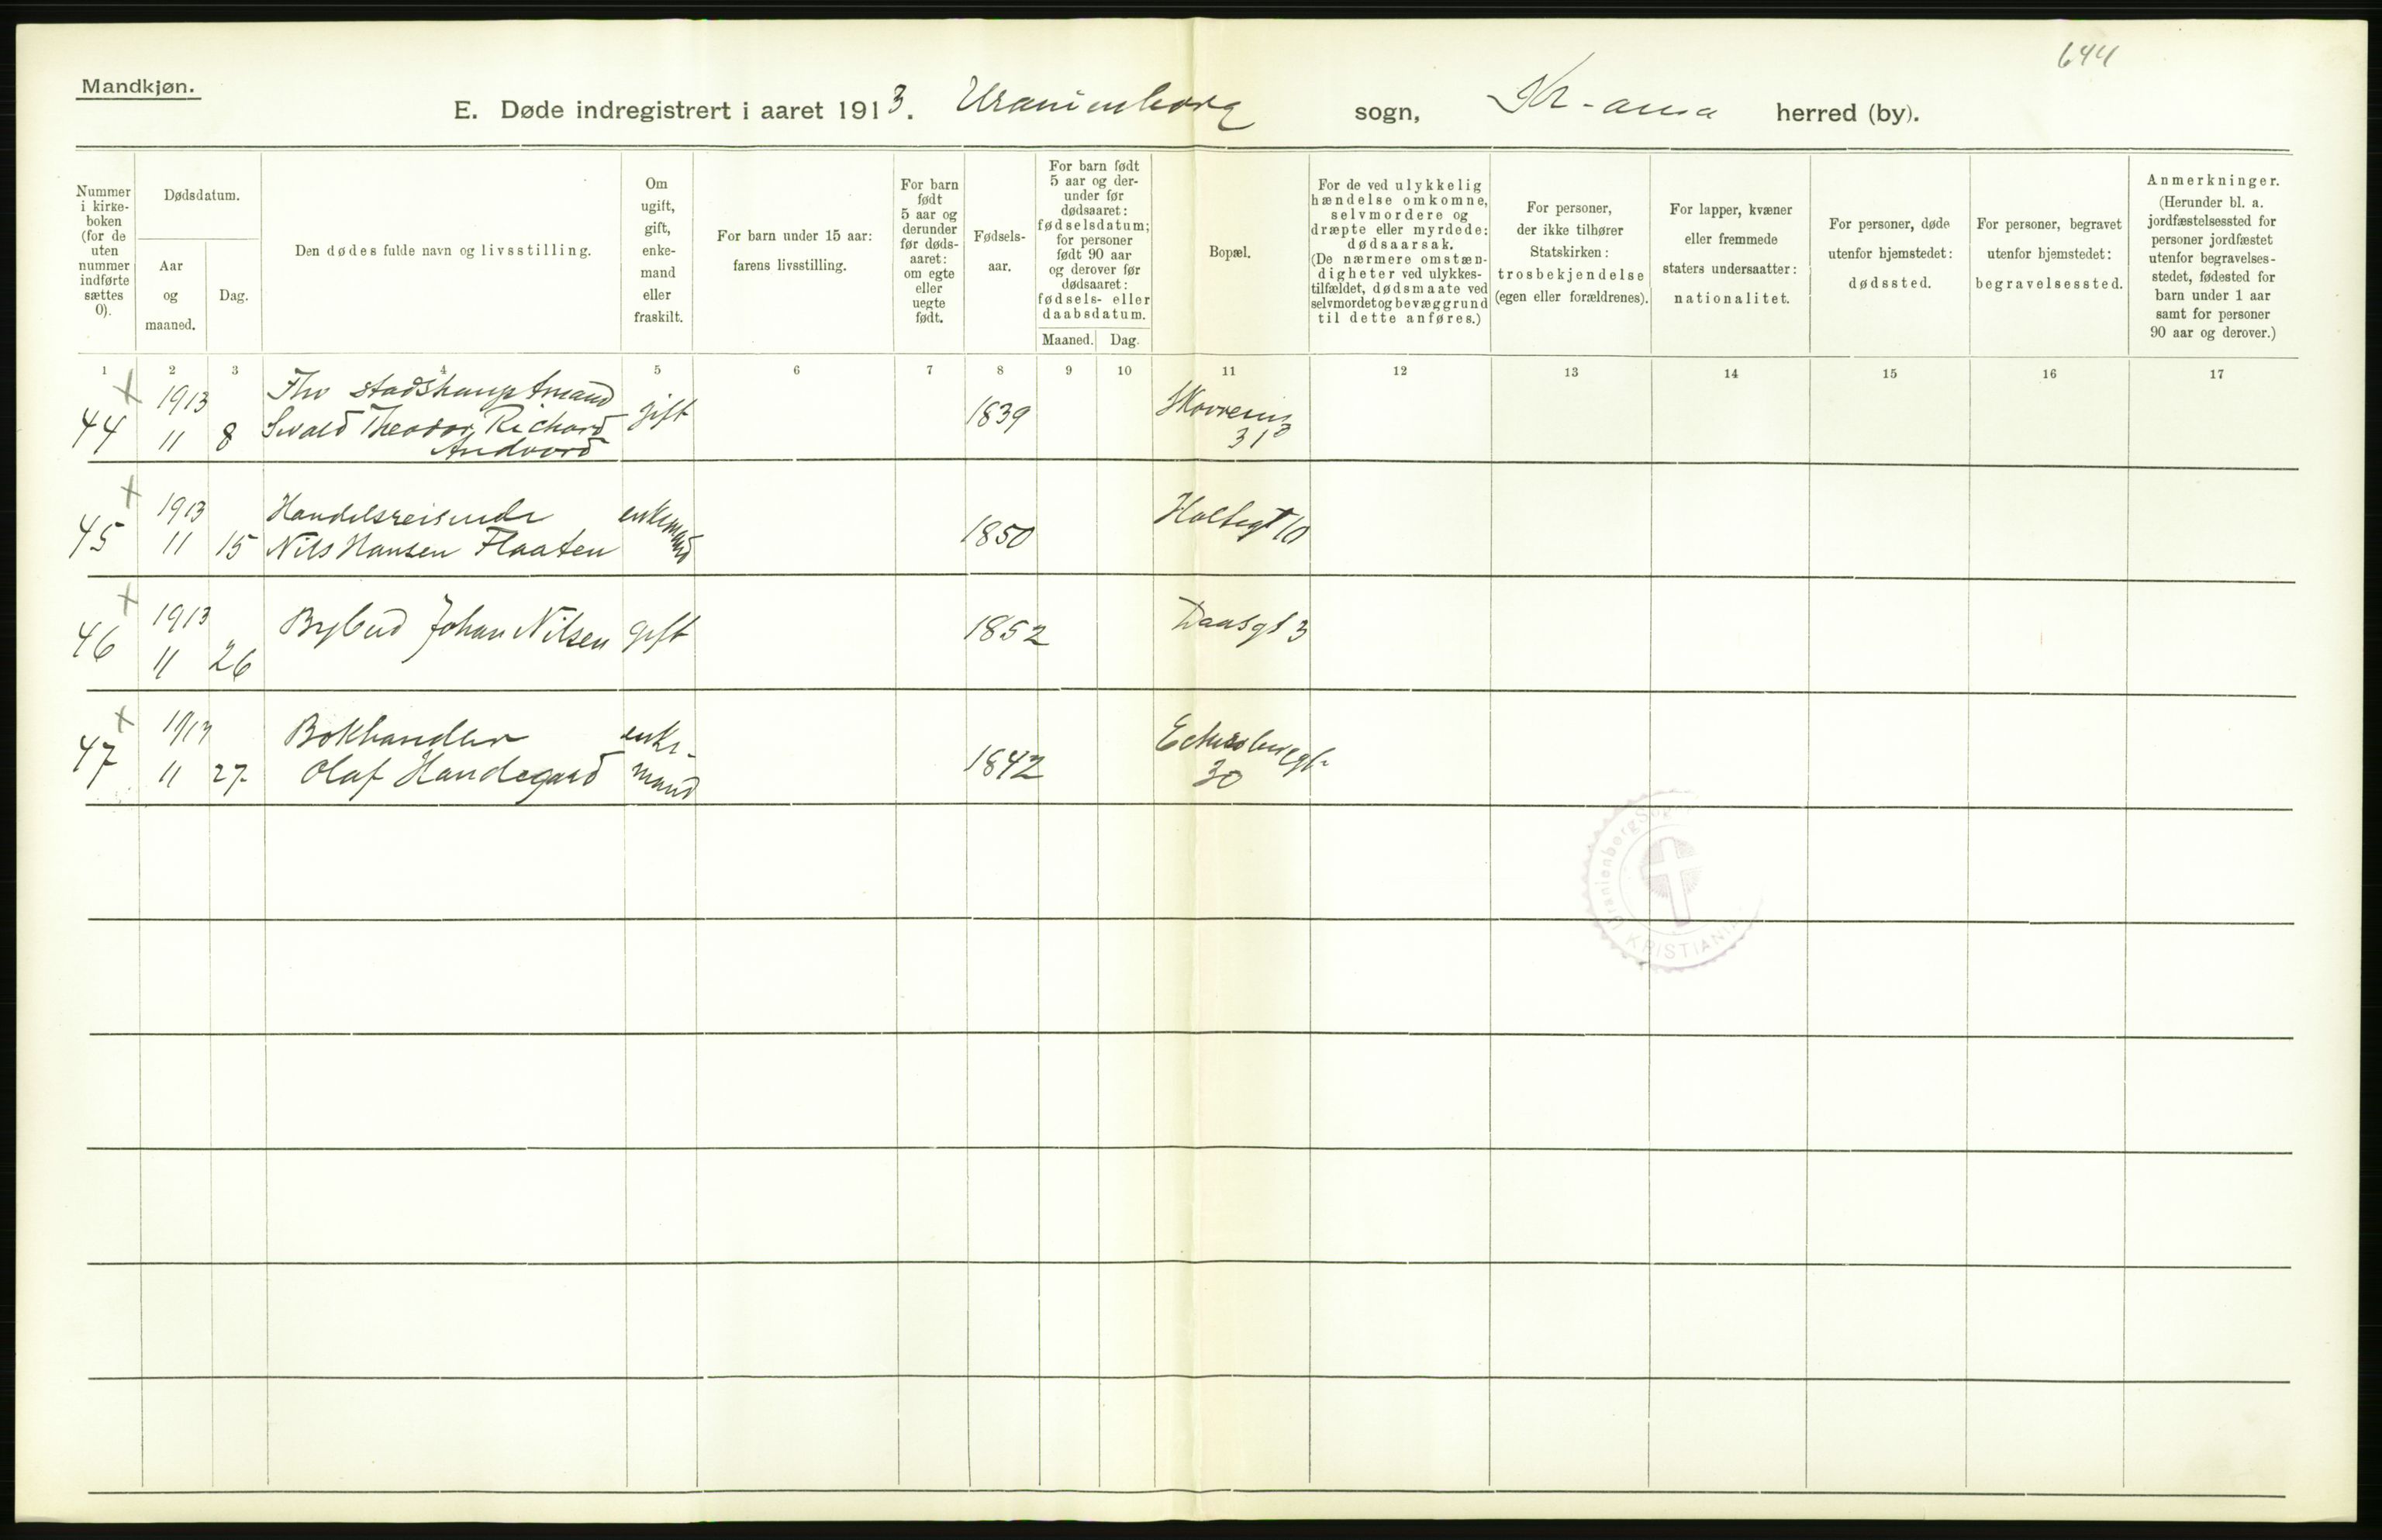 644
Mandkjøn.
E. Døde indregistrert i aaret 1913. Uranienborg sogn, Kr-ania herred (by).
Nummer i kirke-boken (for de uten nummer indførte sættes 0).
Dødsdatum.
Aar og maaned.
Dag.
Den dødes fulde navn og livsstilling.
Om ugift, gift, enke-mand eller fraskilt.
For barn under 15 aar: farens livsstilling.
For barn født 5 aar og derunder før døds-aaret: om egte eller uegte født.
Fødsels-aar.
For barn født 5 aar og der-under før dødsaaret: fødselsdatum; for personer født 90 aar og derover før dødsaaret: fødsels- eller daabsdatum.
Maaned. Dag.
Bopæl.
For de ved ulykkelig hændelse omkomne, selvmordere og dræpte eller myrdede: dødsaarsak. (De nærmere omstæn-digheter ved ulykkes-tilfældet, dødsmaate ved selvmordet og bevæggrund til dette anføres.)
For personer, der ikke tilhører Statskirken: trosbekjendelse (egen eller forældrenes).
For lapper, kvæner eller fremmede staters undersaatter: nationalitet.
For personer, døde utenfor hjemstedet: dødssted.
For personer, begravet utenfor hjemstedet: begravelsessted.
Anmerkninger. (Herunder bl. a. jordfæstelsessted for personer jordfæstet utenfor begravelses-stedet, fødested for barn under 1 aar samt for personer 90 aar og derover.)
1 2 3 4 5 6 7 8 9 10 11 12 13 14 15 16 17
+ 1913 stadshauptmand gift 1839
44 11 8 Theodor Richard 31
Andvord
+ 1913 Handelsreisende enkemand 1850 Holtegt 10
45 11 15 Nils Hansen Flaaten
+ 1913 Bybud Johan Nilsen gift 1852 Daasgt 3
46 11 26
+ 1913 Bokhandler enke-
47 11 27 Olaf Handegaard mand 1842 30
Uranienborg
KRISTIANIA